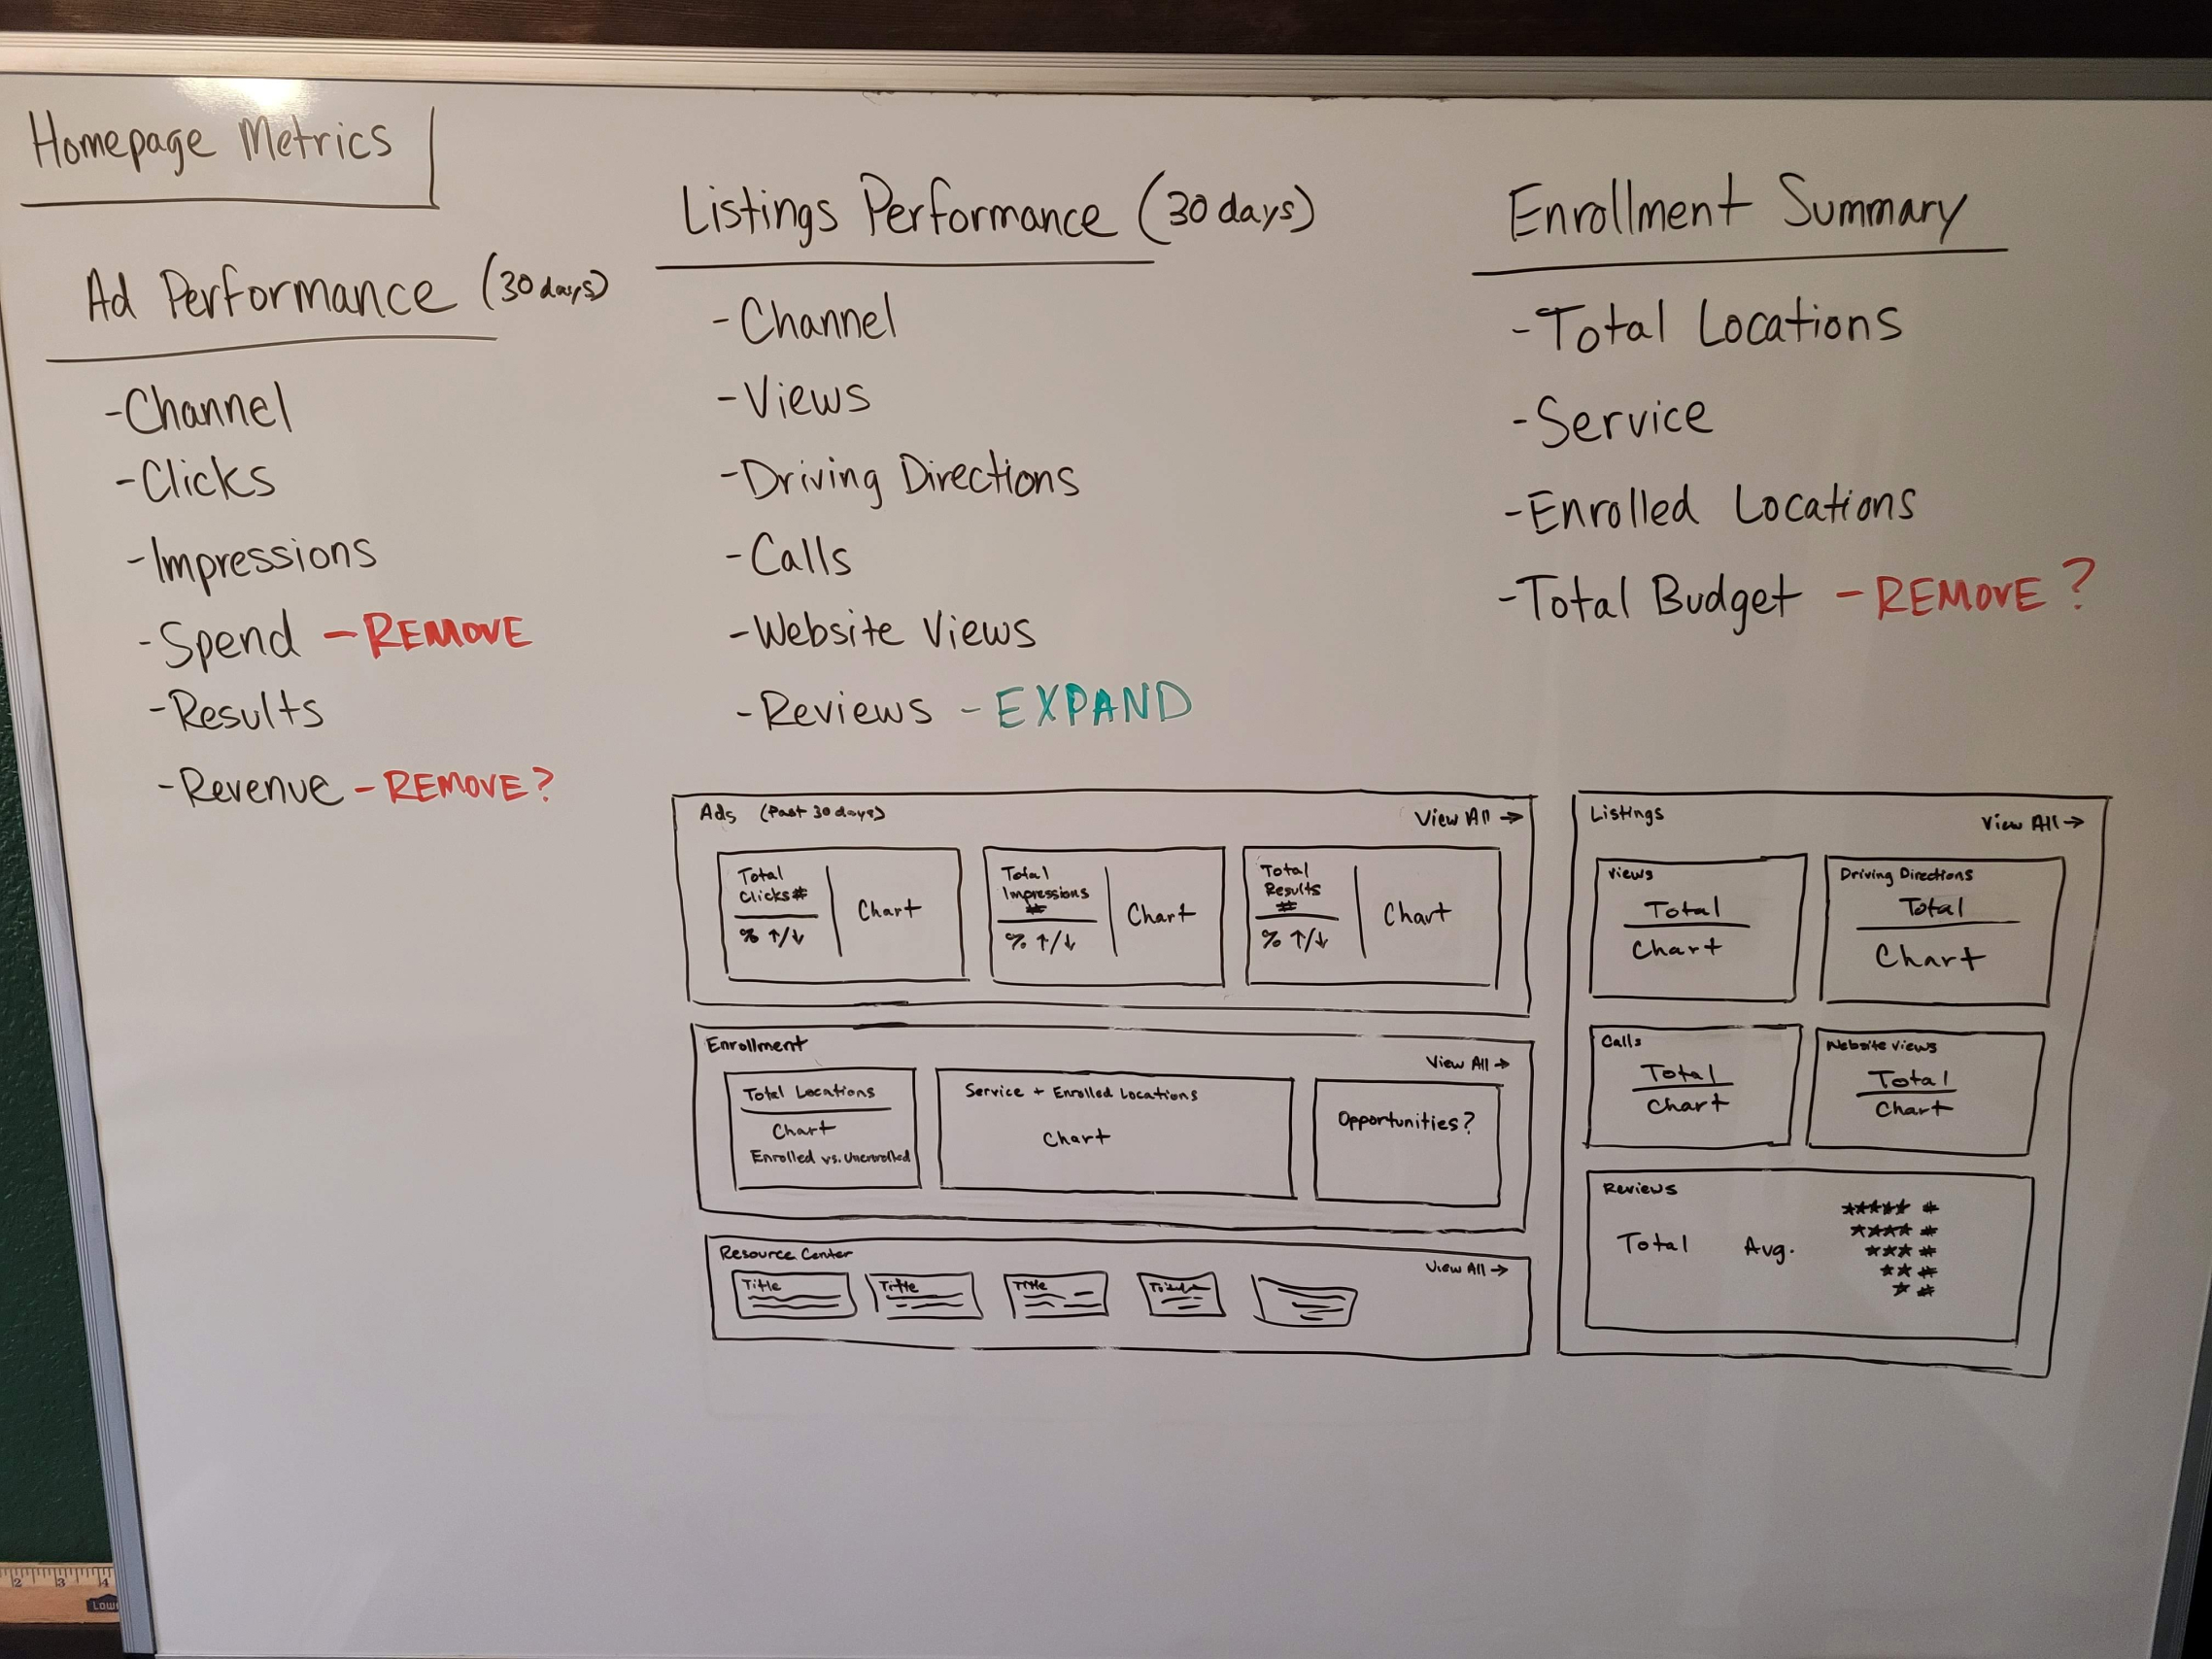 Homepage Metrics
Ad Performance (30 days)
-Channel
-Clicks
-Impressions
-Spend - REMOVE
-Results
-Revenue - REMOVE?
Listings Performance (30 days)
-Channel
-Views
-Driving Directions
-Calls
-Website Views
-Reviews - EXPAND
Enrollment Summary
-Total Locations
-Service
-Enrolled Locations
-Total Budget - REMOVE?
Ads (Past 30 days)
View All →
Total
Clicks #
% ↑/↓
Chart
Total
Impressions
#
% ↑/↓
Chart
Total
Results
#
% ↑/↓
Chart
Enrollment
View All →
Total Locations
Chart
Enrolled vs. Unenrolled
Service + Enrolled Locations
Chart
Opportunities?
Resource Center
View All →
Title
Title
Title
Listings
View All →
Views
Total
Chart
Driving Directions
Total
Chart
Calls
Total
Chart
Website Views
Total
Chart
Reviews
Total Avg.
★★★★★ #
★★★★ #
★★★ #
★★ #
★ #
2 3 4